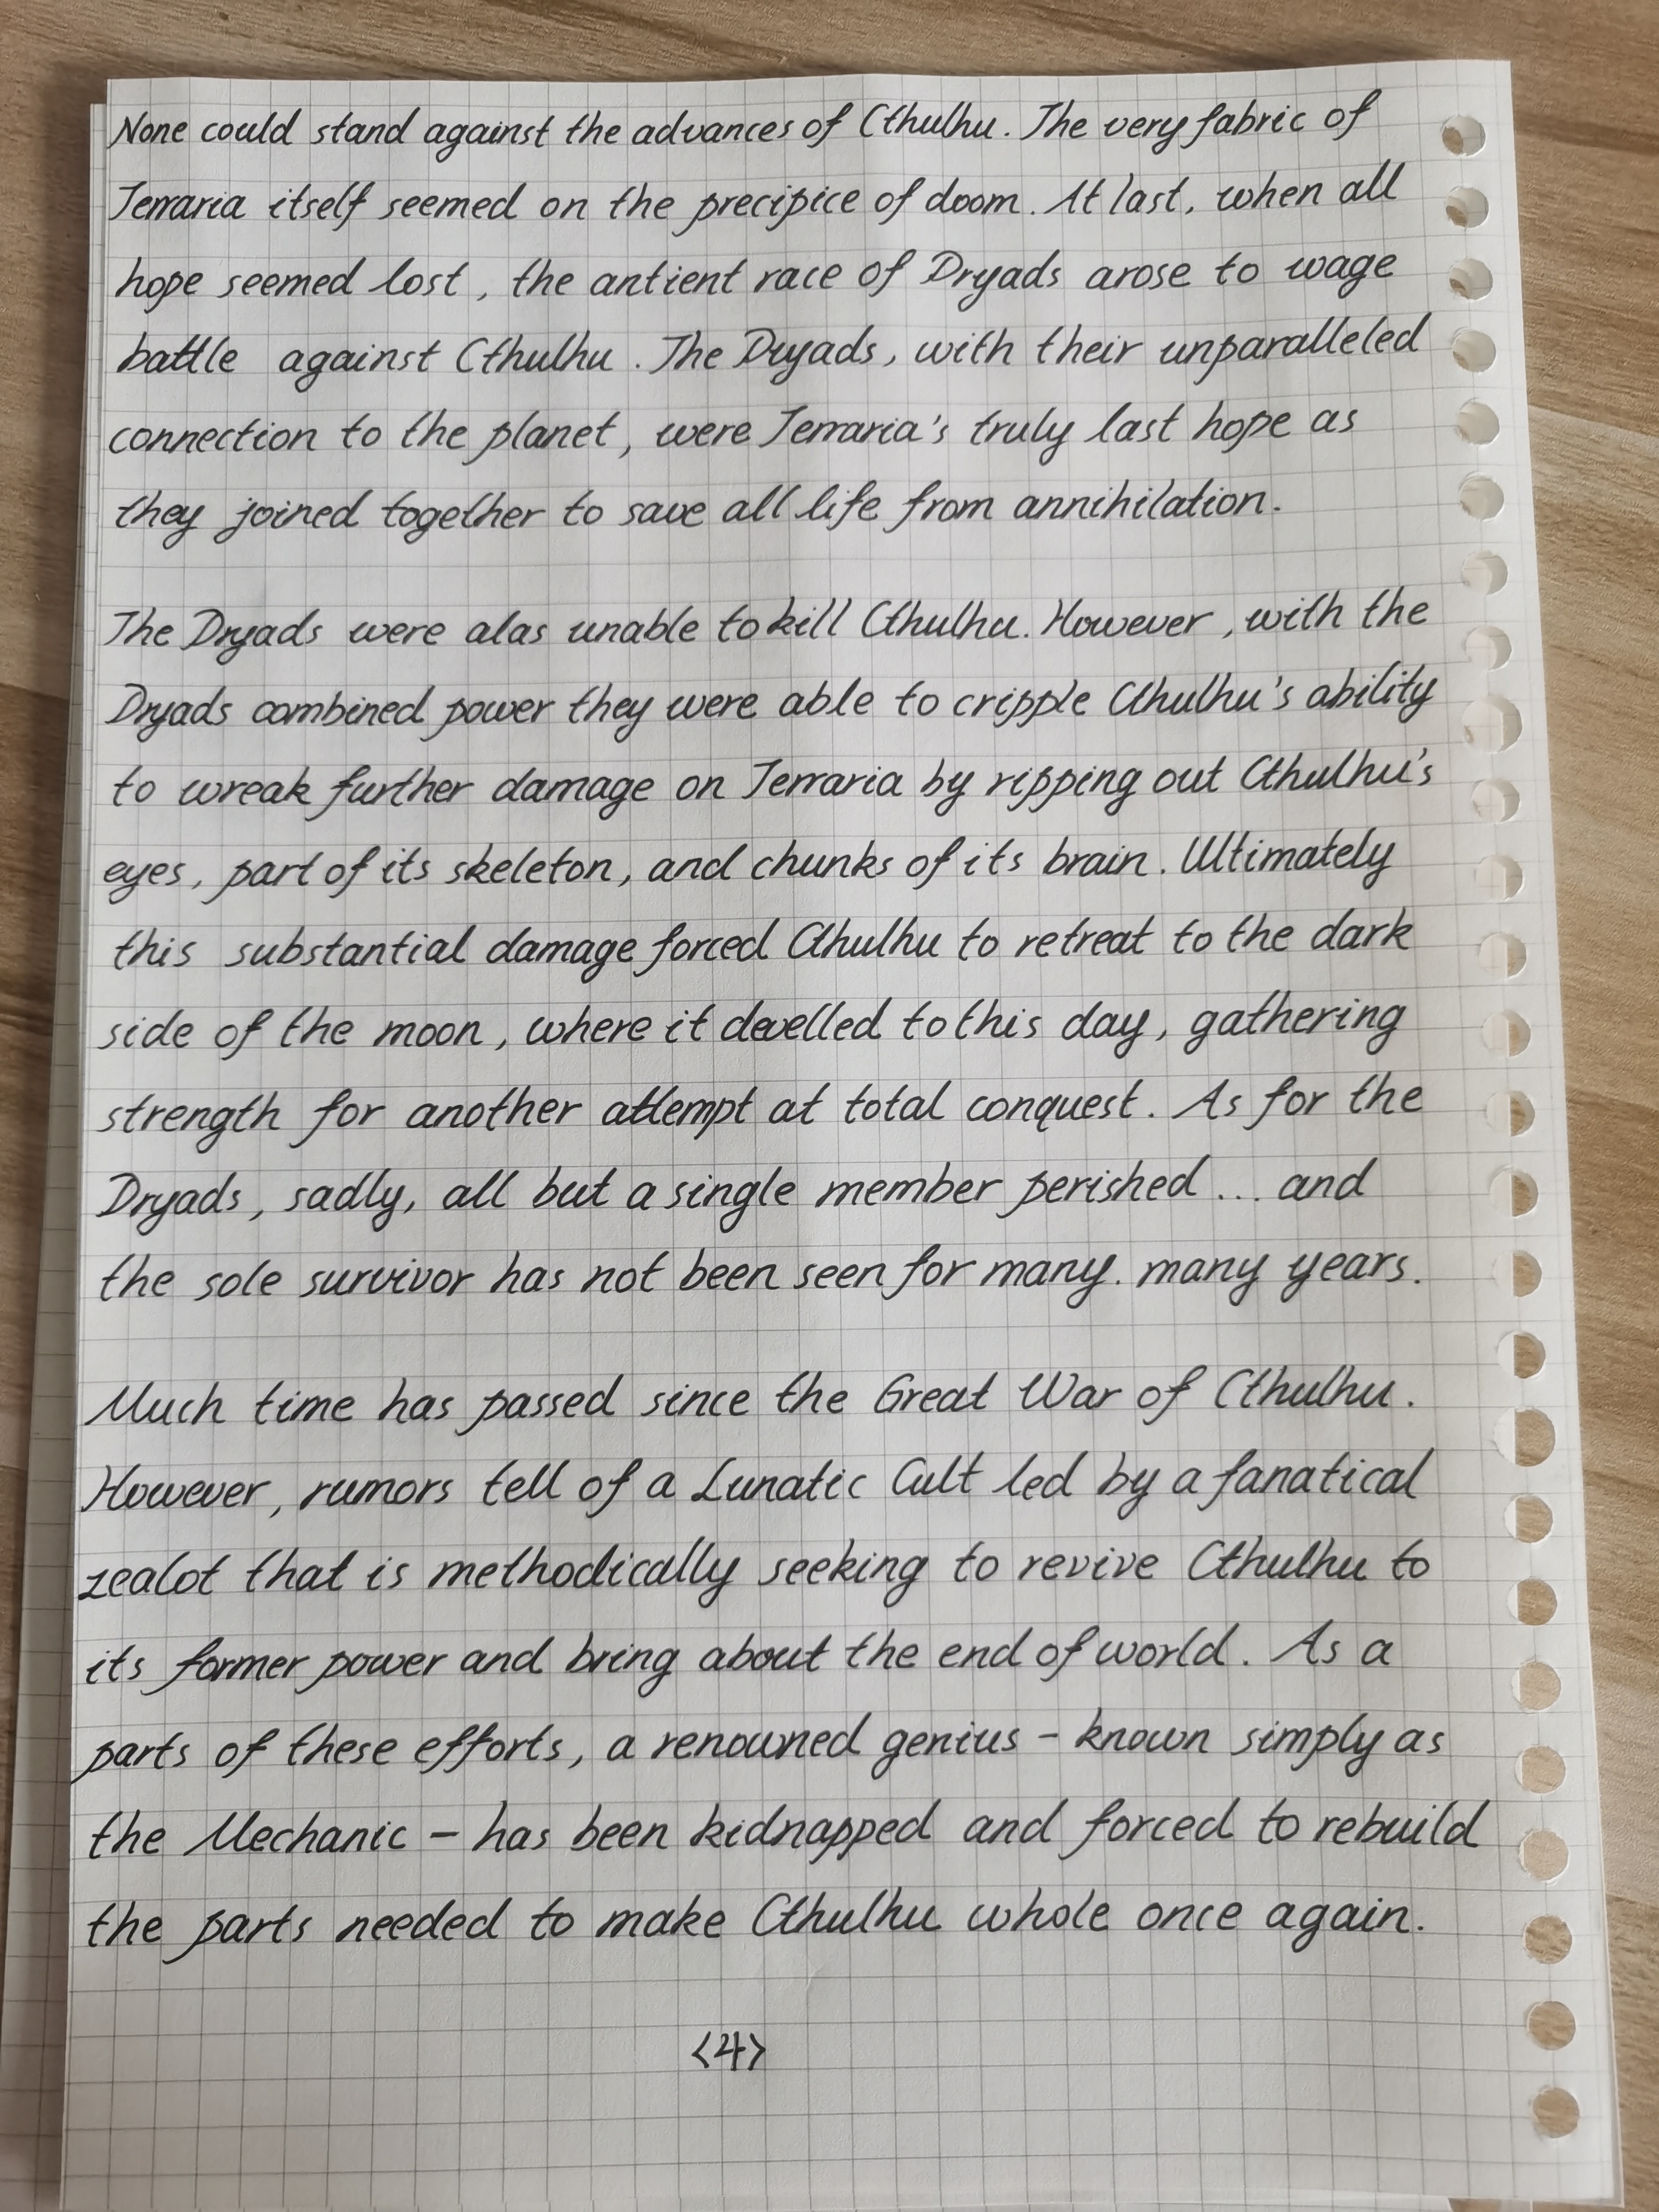 None could stand against the advances of Cthulhu. The very fabric of
Terraria itself seemed on the precipice of doom. At last, when all
hope seemed lost, the antient race of Dryads arose to wage
battle against Cthulhu. The Dryads, with their unparalleled
connection to the planet, were Terraria's truly last hope as
they joined together to save all life from annihilation.
The Dryads were alas unable to kill Cthulhu. However, with the
Dryads combined power they were able to cripple Cthulhu's ability
to wreak further damage on Terraria by ripping out Cthulhu's
eyes, part of its skeleton, and chunks of its brain. Ultimately
this substantial damage forced Cthulhu to retreat to the dark
side of the moon, where it dwelled to this day, gathering
strength for another attempt at total conquest. As for the
Dryads, sadly, all but a single member perished ... and
the sole survivor has not been seen for many. many years.
Much time has passed since the Great War of Cthulhu.
However, rumors tell of a Lunatic Cult led by a fanatical
zealot that is methodically seeking to revive Cthulhu to
its former power and bring about the end of world. As a
parts of these efforts, a renowned genius - known simply as
the Mechanic - has been kidnapped and forced to rebuild
the parts needed to make Cthulhu whole once again.
<4>